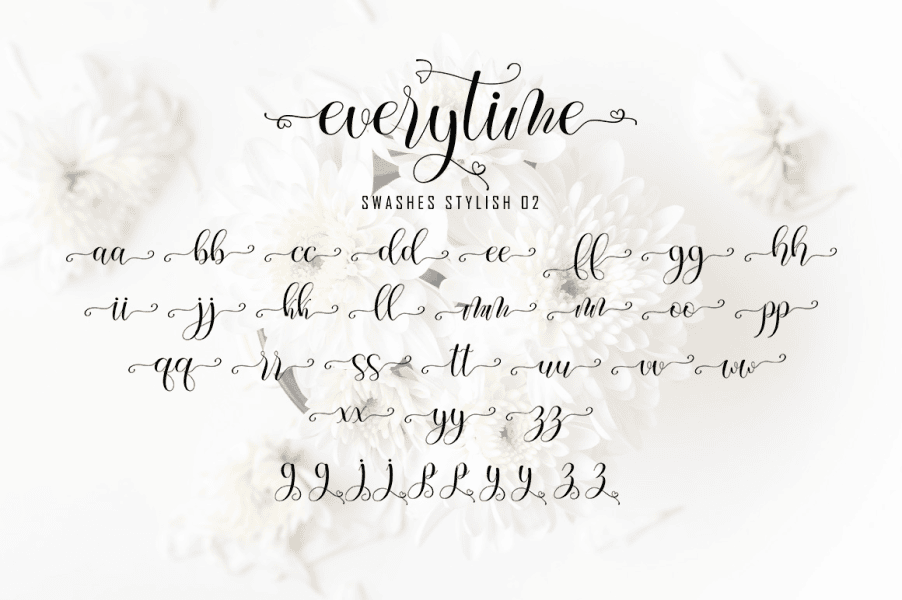 everytime
SWASHES STYLISH 02
aa bb cc dd ee ff gg hh
ii jj kk ll mm nn oo pp
qq rr ss tt uu vv ww
xx yy zz
g g j j p p y y z z